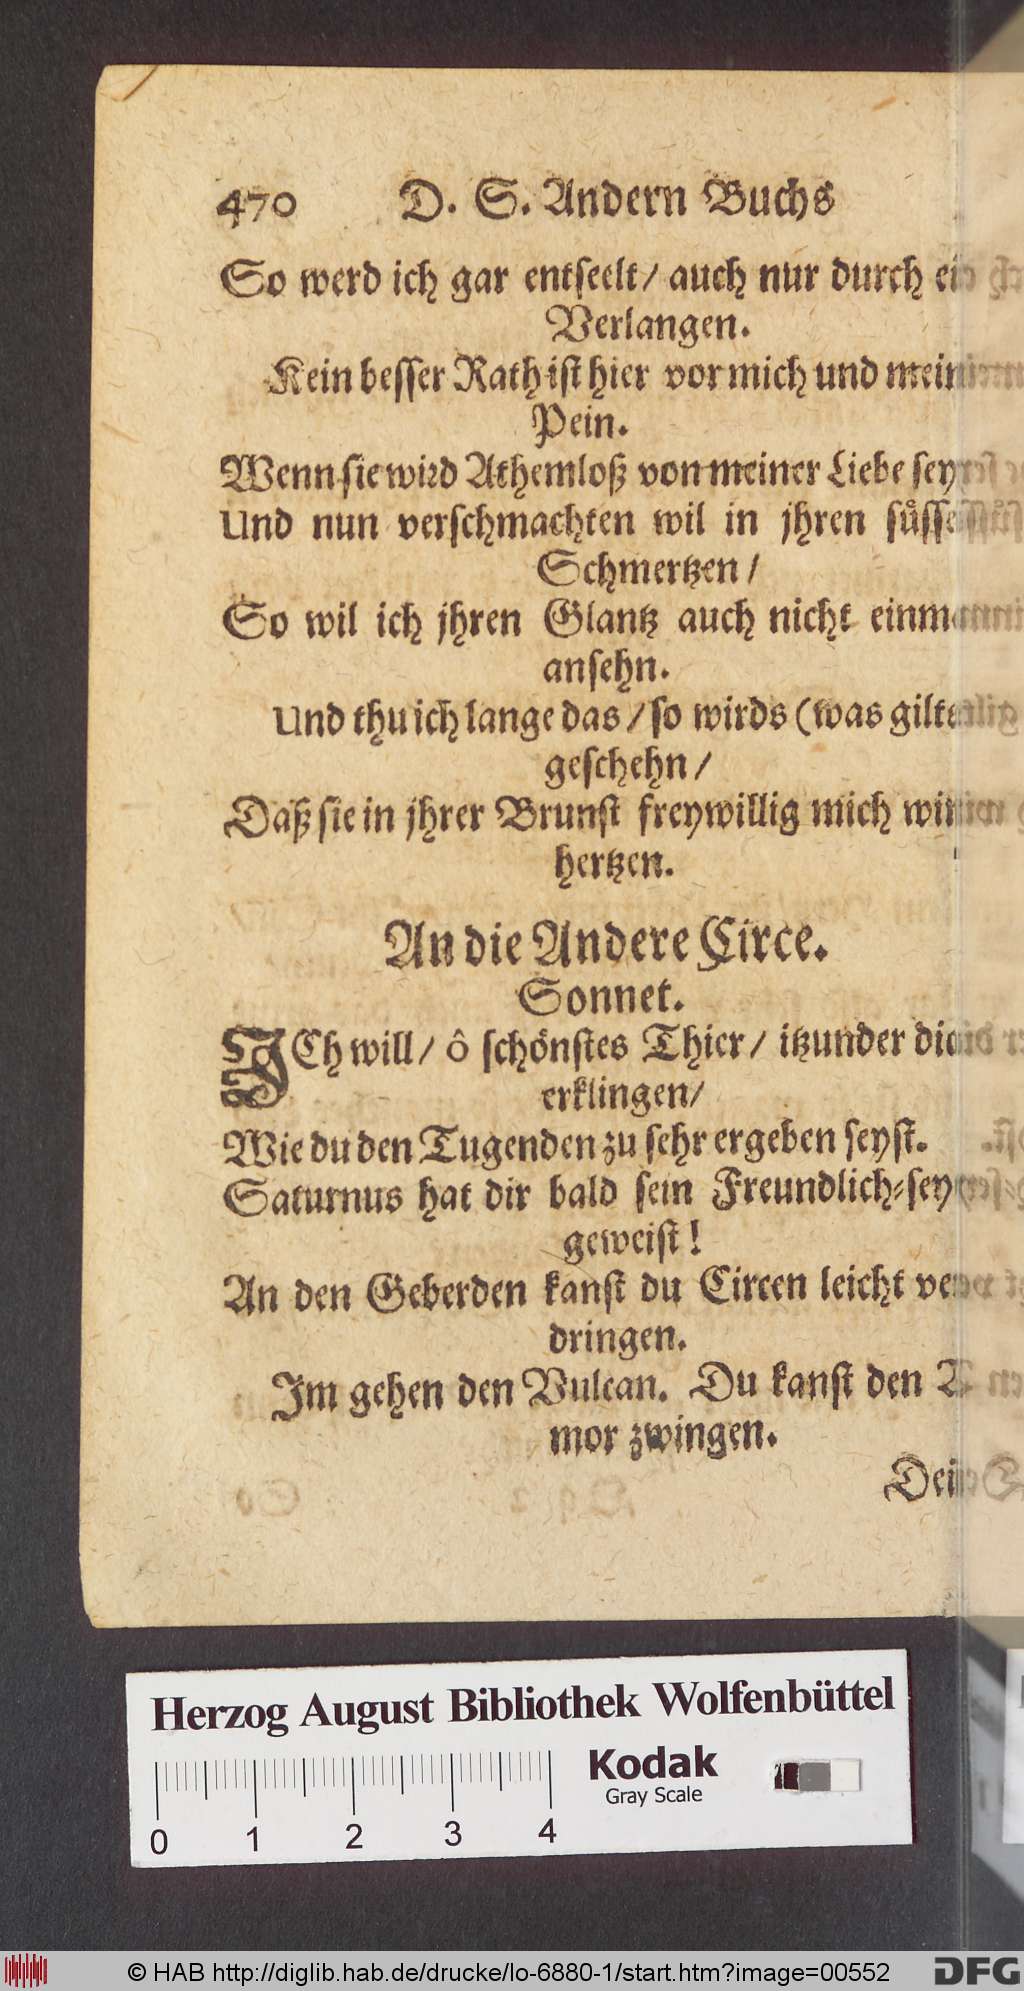 470 D. S. Andern Buchs
So werd ich gar entseelt/ auch nur durch ein
Verlangen.
Kein besser Rath ist hier vor mich und mein
Pein.
Wenn sie wird Athemloß von meiner Liebe sey
Und nun verschmachten wil in jhren
Schmertzen/
So wil ich jhren Glantz auch nicht
ansehn.
Und thu ich lange das/ so wirds (was
geschehn/
Daß sie in jhrer Brunst freywillig mich
hertzen.
An die Andere Circe.
Sonnet.
ICh will/ ô schönstes Thier/ itzunder
erklingen/
Wie du den Tugenden zu sehr ergeben seyst.
Saturnus hat dir bald sein Freundlich-sey
geweist!
An den Geberden kanst du Circen leicht
dringen.
Im gehen den Vulcan. Du kanst den A-
mor zwingen.
Dein
Herzog August Bibliothek Wolfenbüttel
Kodak
Gray Scale
0 1 2 3 4
© HAB http://diglib.hab.de/drucke/lo-6880-1/start.htm?image=00552
DFG